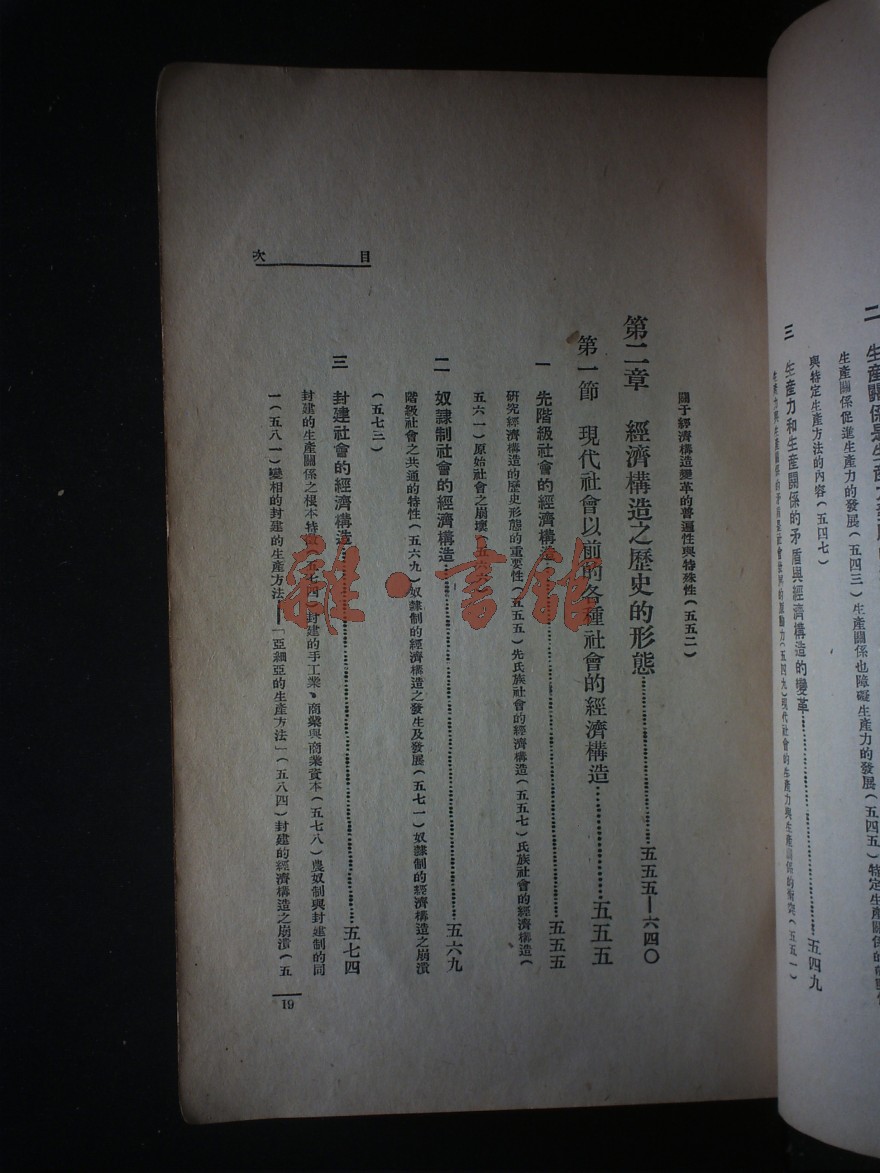 二 生產關係是生產力發展的
生產關係促進生產力的發展(五四三)生產關係也障礙生產力的發展(五四五)特定生產關係的
與特定生產方法的內容(五四七)
三 生產力和生產關係的矛盾與經濟構造的變革……五四九
生產力與生產關係的矛盾是社會發展的原動力(五四九)現代社會的生產力與生產關係的衝突(五五一)
關于經濟構造變革的普遍性與特殊性(五五二)
第二章 經濟構造之歷史的形態……五五五—六四〇
第一節 現代社會以前的各種社會的經濟構造……五五五
一 先階級社會的經濟構造……五五五
研究經濟構造的歷史形態的重要性(五五五)先氏族社會的經濟構造(五五七)氏族社會的經濟構造(
五六一)原始社會之崩壞(五六六)
二 奴隸制社會的經濟構造……五六九
階級社會之共通的特性(五六九)奴隸制的經濟構造之發生及發展(五七一)奴隸制的經濟構造之崩潰
(五七三)
三 封建社會的經濟構造……五七四
封建的生產關係之根本特徵(五七四)封建的手工業、商業與商業資本(五七八)農奴制與封建制的同
一(五八一)變相的封建的生產方法——「亞細亞的生產方法」(五八四)封建的經濟構造之崩潰(五
目次
19
雜·書館